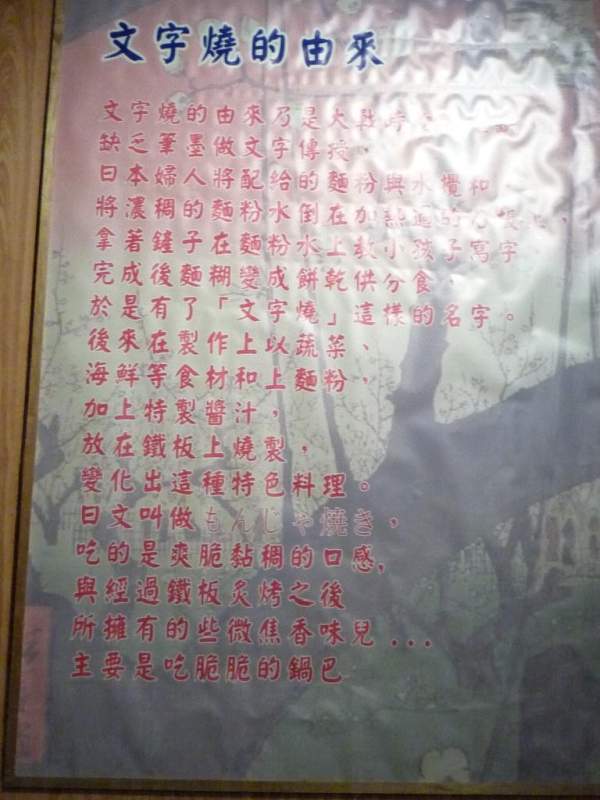 文字燒的由來
文字燒的由來乃是大戰時，
缺乏筆墨做文字傳授，
日本婦人將配給的麵粉與水攪和，
將濃稠的麵粉水倒在加熱過的鐵板上，
拿著鏟子在麵粉水上教小孩子寫字，
完成後麵糊變成餅乾供分食，
於是有了「文字燒」這樣的名字。
後來在製作上以蔬菜、
海鮮等食材和上麵粉，
加上特製醬汁，
放在鐵板上燒製，
變化出這種特色料理。
日文叫做もんじゃ焼き，
吃的是爽脆黏稠的口感，
與經過鐵板炙烤之後
所擁有的些微焦香味兒...
主要是吃脆脆的鍋巴